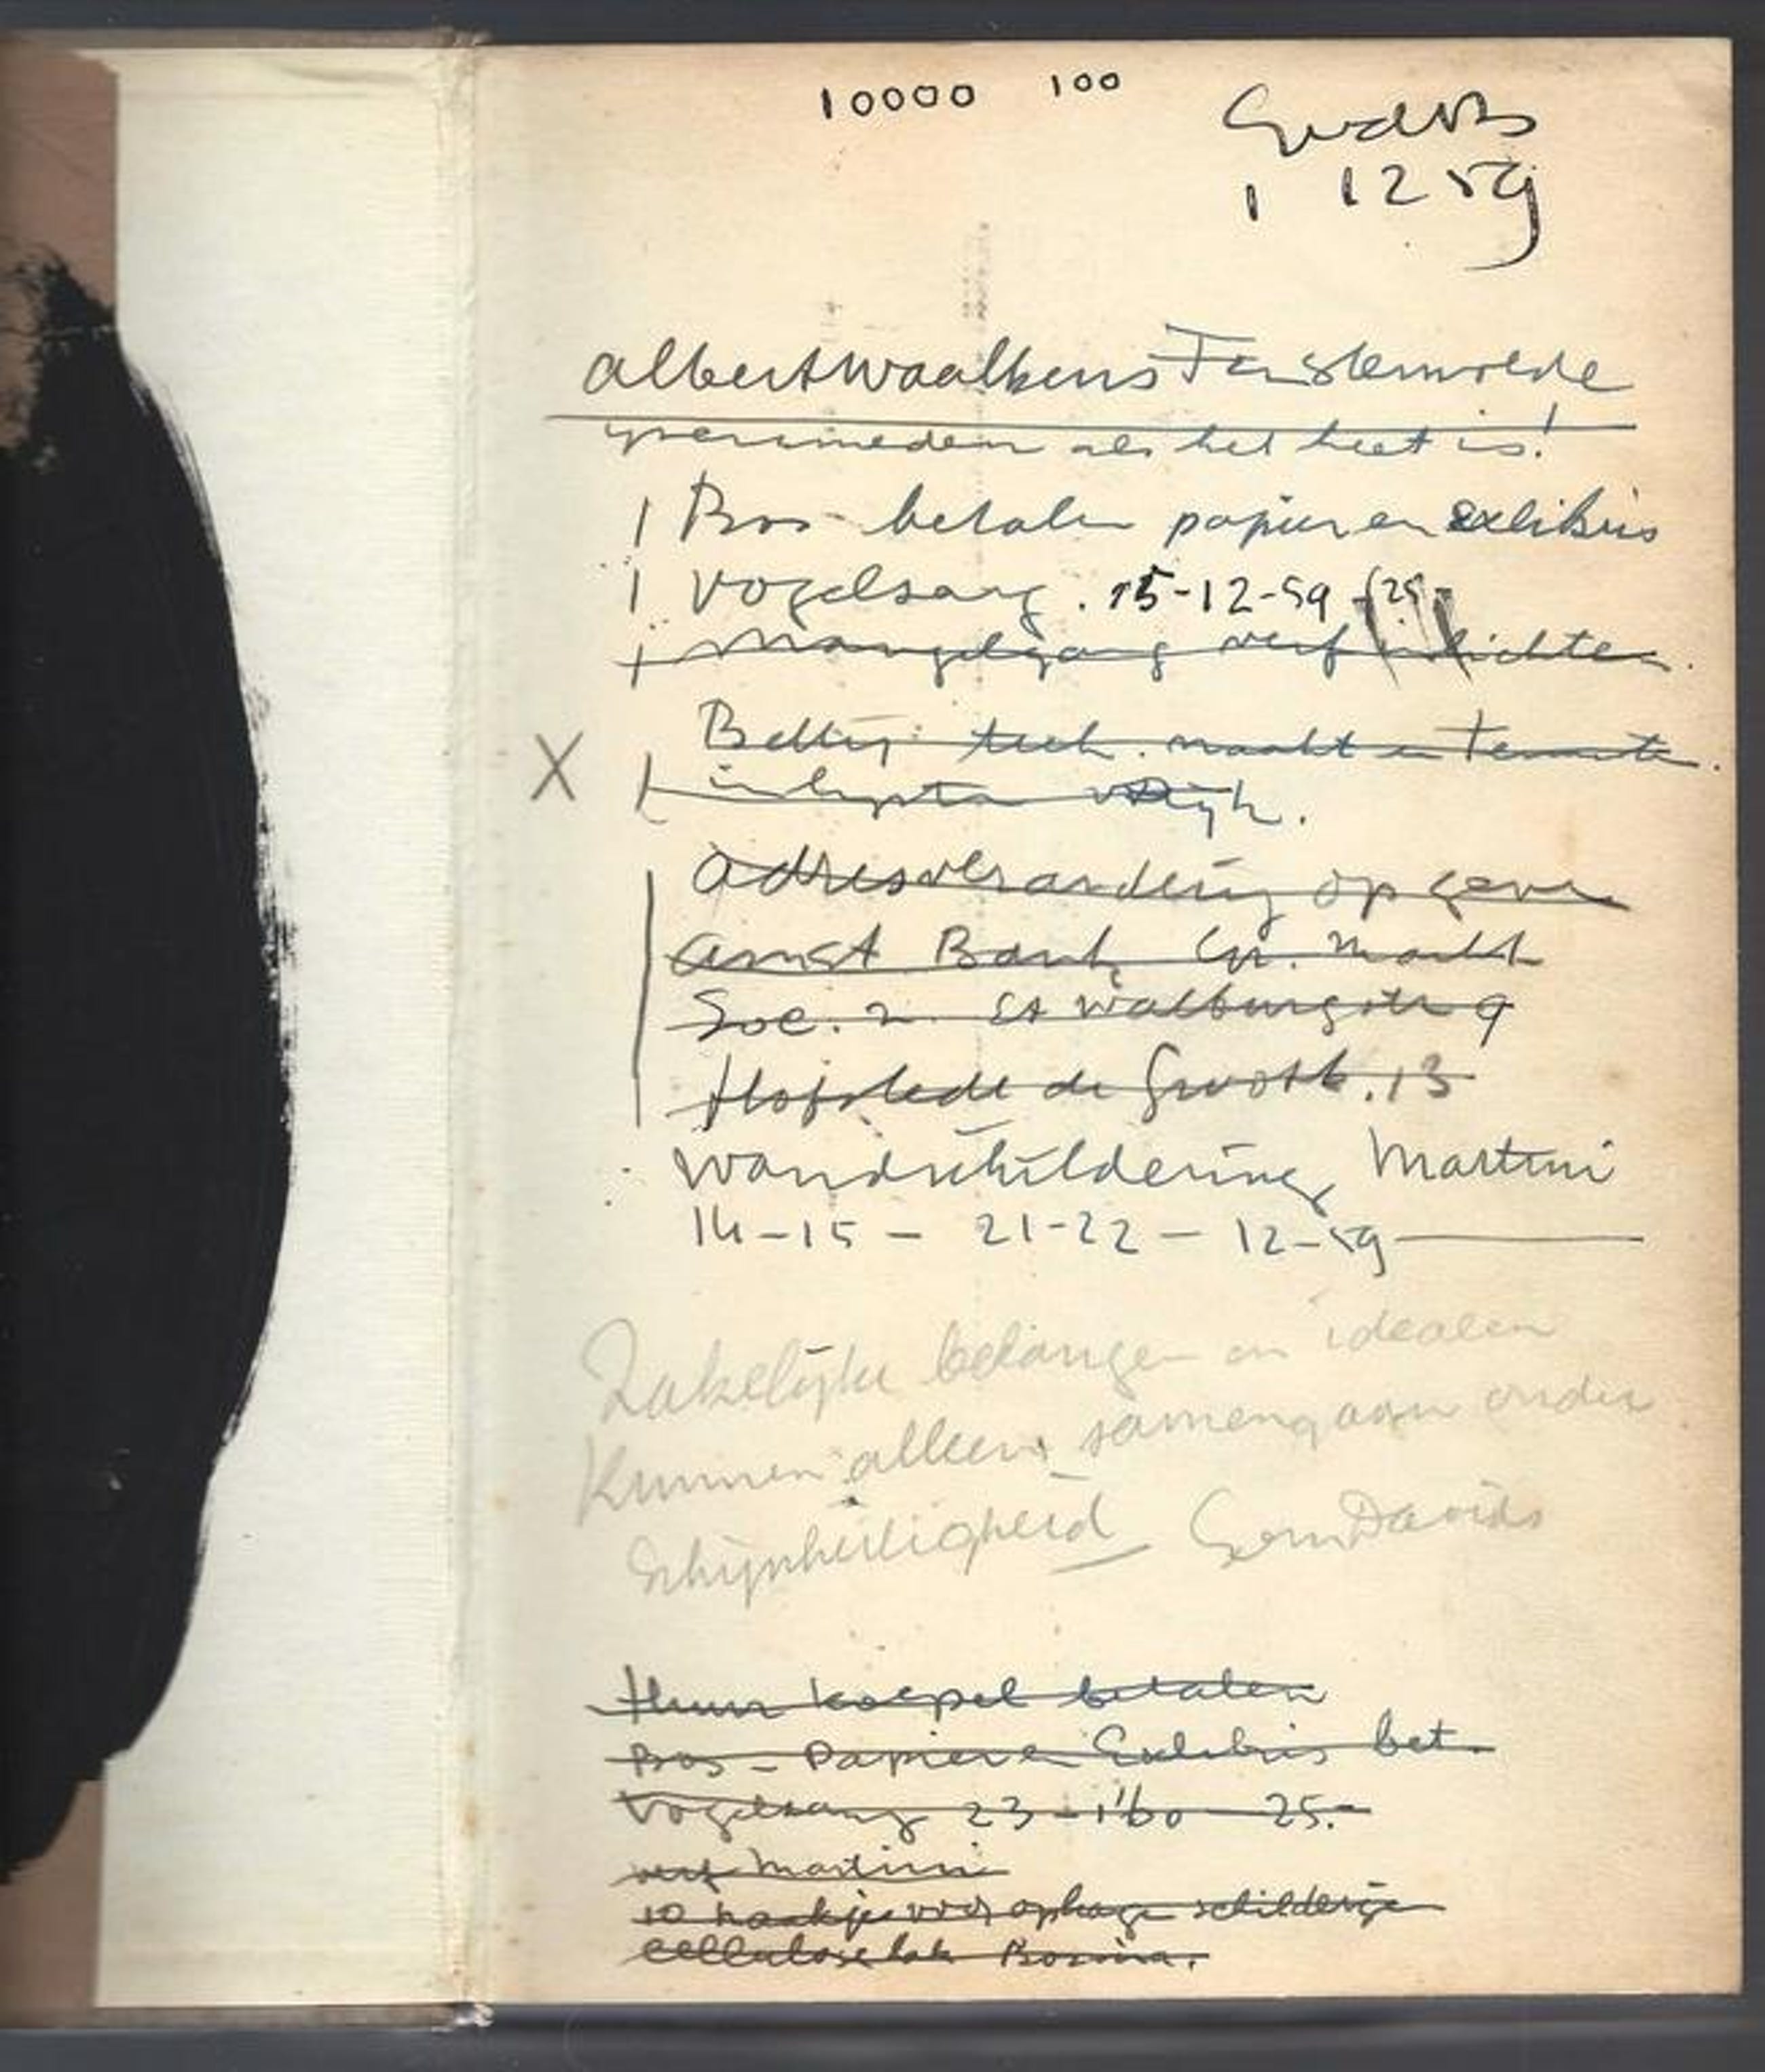 10000 100
1 12 59
albert waalkens Finsterwolde
ijzer smeden als het heet is!
| Bos - betalen papier en exlibris
| Vogelsang . 15-12-59 f25,-
verf
Betty tech. naakt en
adresverandering opgeven
amst Bank Gr. Markt
Soc. St Walburgstr 9
Hofstede de Grootk. 13
Wandschildering Martini
14-15 - 21-22 - 12-59
Zakelijke belangen en idealen
Kunnen alleen samengaan onder
schijnheiligheid Gom Davids
Huur koepel betalen
Bos - Papier en Exlibris bet.
Vogelsang 23-1'60 25.-
verf Martini
10 haakjes voor ophangen schilderijen
celluloselak